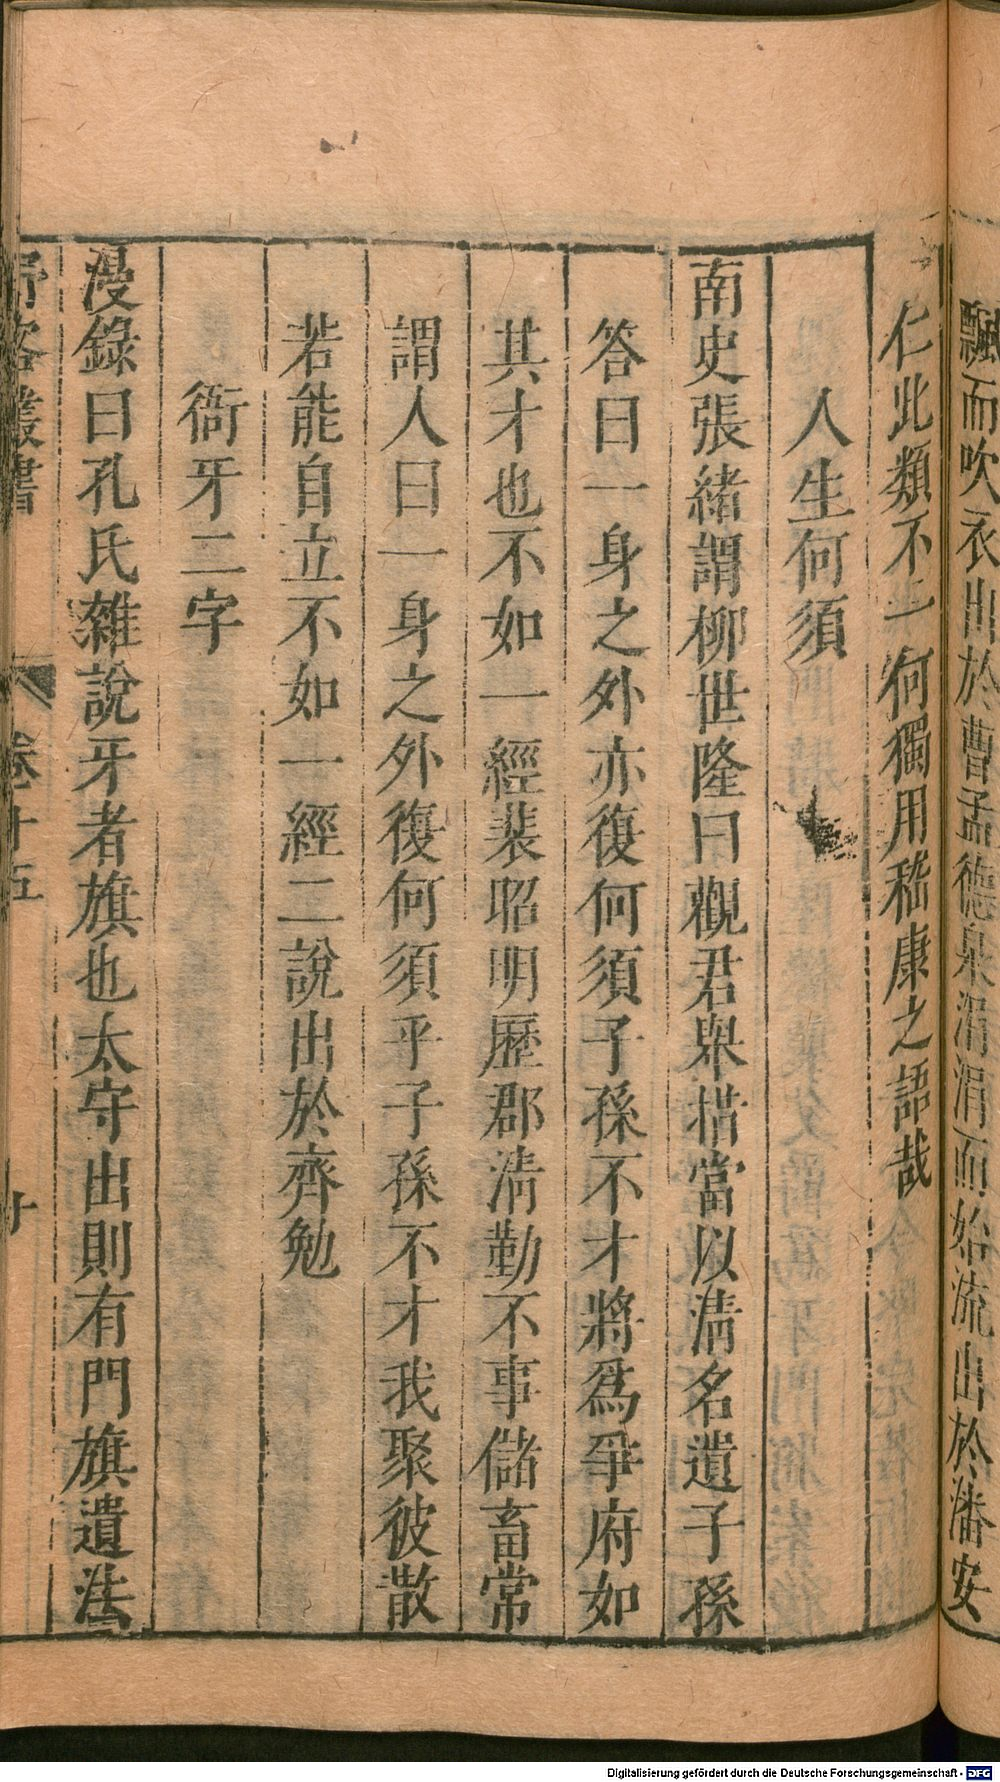 飄而吹衣出於曹孟德泉涓涓而始流出於潘安
仁此類不一何獨用嵇康之語哉
人生何須
南史張緒謂柳世隆曰觀君舉措當以清名遺子孫
答曰一身之外亦復何須子孫不才將爲爭府如
其才也不如一經裴昭明歷郡清勤不事儲畜常
謂人曰一身之外復何須乎子孫不才我聚彼散
若能自立不如一經二說出於齊勉
衙牙二字
漫錄曰孔氏雜說牙者旗也太守出則有門旗遺法
野客叢書 卷十五
Digitalisierung gefördert durch die Deutsche Forschungsgemeinschaft - DFG